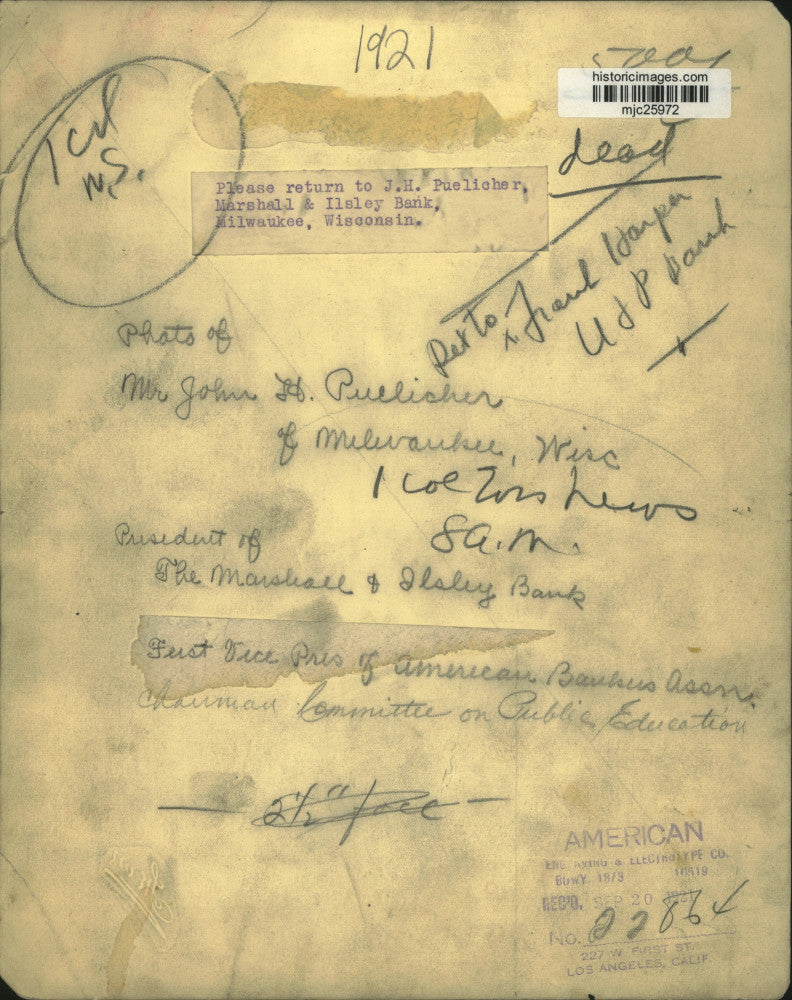 1921
historicimages.com
mjc25972
dead
1 col
N.S.
Please return to J.H. Puelicher,
Marshall & Ilsley Bank,
Milwaukee, Wisconsin.
Ret to Frank Harper
U & P Bank
Photo of
Mr John H. Puelicher
of Milwaukee, Wisc
1 col News
8 a.m.
President of
The Marshall & Ilsley Bank
First Vice Pres of American Bankers Assn.
Chairman Committee on Public Education
2 1/2" face
AMERICAN
ENGRAVING & ELECTROTYPE CO.
BDWY. 1873
REC'D. SEP 20 1921
No. 22864
227 W. FIRST ST.
LOS ANGELES, CALIF.